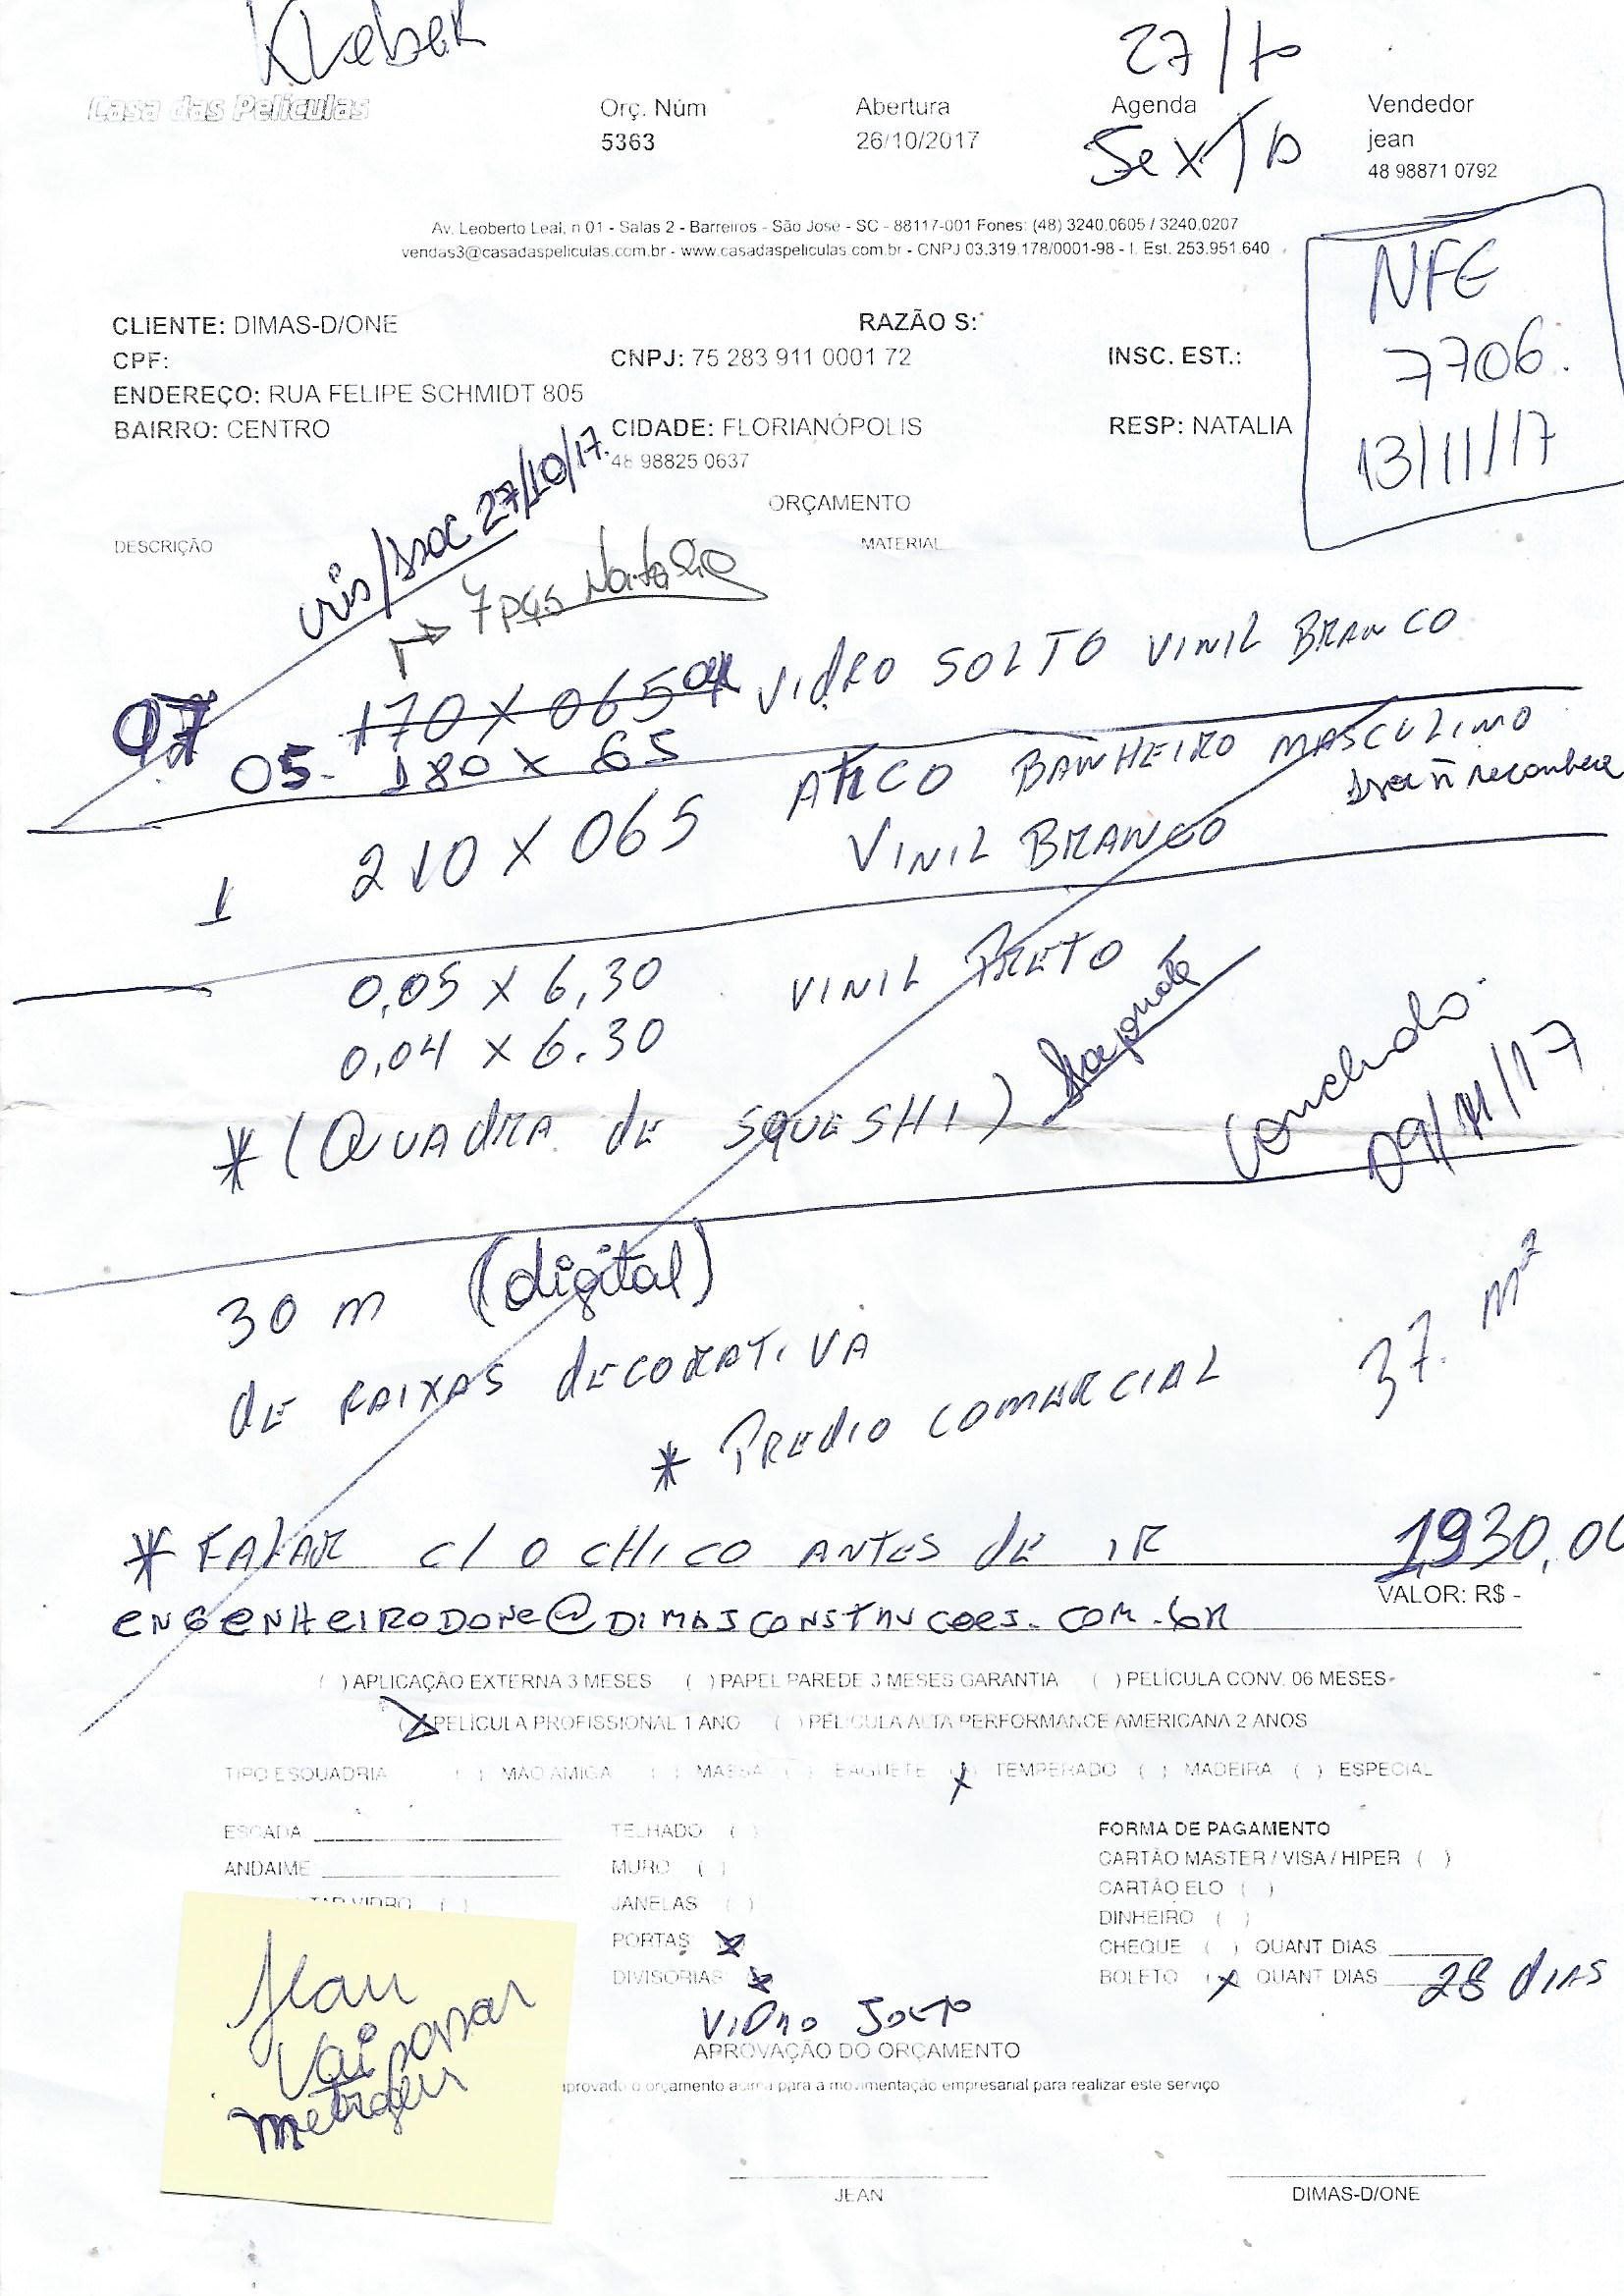 Kleber
27/10
Casa das Películas
Orç. Núm
Abertura
Agenda
Vendedor
5363
26/10/2017
Sexta
jean
48 98871 0792
Av. Leoberto Leal, n 01 - Salas 2 - Barreiros - São José - SC - 88117-001 Fones: (48) 3240.0605 / 3240.0207
vendas3@casadaspeliculas.com.br - www.casadaspeliculas.com.br - CNPJ 03.319.178/0001-98 - I. Est. 253.951.640
NFE
7706.
13/11/17
CLIENTE: DIMAS-D/ONE
RAZÃO S:
CPF:
CNPJ: 75 283 911 0001 72
INSC. EST.:
ENDEREÇO: RUA FELIPE SCHMIDT 805
BAIRRO: CENTRO
CIDADE: FLORIANÓPOLIS
RESP: NATALIA
48 98825 0637
ORÇAMENTO
DESCRIÇÃO
MATERIAL
27/10/17.
7 pçs Natalia
07
170 X 065 VIDRO SOLTO VINIL BRANCO
05- 180 X 65
1 210 X 065
BANHEIRO MASCULINO
VINIL BRANCO
ñ reconhece
0,05 X 6,30 VINIL PRETO
0,04 X 6.30
* (QUADRA DE SQUESHI)
Concluído
09/11/17
30 m (digital)
DE FAIXAS DECORATIVA
* PREDIO COMERCIAL
37. m²
* FALAR C/ O CHICO ANTES DE IR
1,930,00
VALOR: R$ -
engenheirodone@dimasconstrucoes.com.br
( ) APLICAÇÃO EXTERNA 3 MESES ( ) PAPEL PAREDE 3 MESES GARANTIA ( ) PELÍCULA CONV. 06 MESES
(X) PELÍCULA PROFISSIONAL 1 ANO ( ) PELÍCULA ALTA PERFORMANCE AMERICANA 2 ANOS
TIPO ESQUADRIA ( ) MÃO AMIGA ( ) MASSA ( ) BAGUETE (X) TEMPERADO ( ) MADEIRA ( ) ESPECIAL
ESCADA
TELHADO ( )
FORMA DE PAGAMENTO
ANDAIME
MURO ( )
CARTÃO MASTER / VISA / HIPER ( )
VIDRO ( )
JANELAS ( )
CARTÃO ELO ( )
DINHEIRO ( )
PORTAS (X)
CHEQUE ( ) QUANT DIAS
DIVISÓRIAS (X)
BOLETO (X) QUANT DIAS 28 DIAS
Vidro Solto
APROVAÇÃO DO ORÇAMENTO
aprovado o orçamento acima para a movimentação empresarial para realizar este serviço
Jean
Vai passar
metragem
JEAN
DIMAS-D/ONE